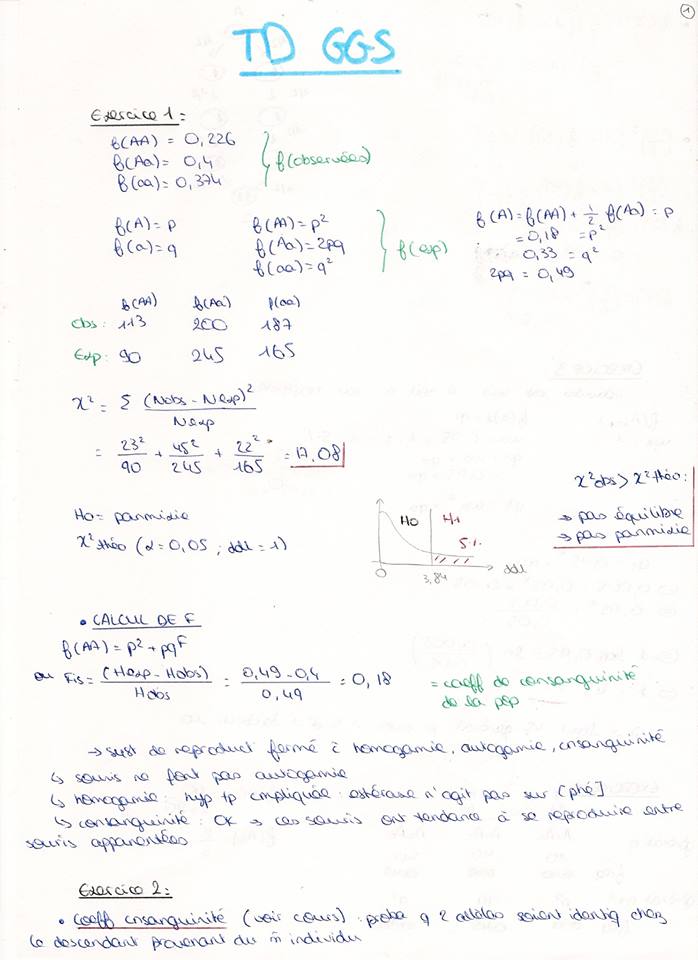 1
TD GGS
Exercice 1 :
f(AA) = 0,226
f(Aa) = 0,4
f(aa) = 0,374
f(observées)
f(A) = p f(AA) = p²
f(a) = q f(Aa) = 2pq
f(aa) = q²
f(exp)
f(A) = f(AA) + 1/2 f(Aa) = p
= 0,18 = p²
0,33 = q²
2pq = 0,49
f(AA) f(Aa) f(aa)
Obs : 113 200 187
Exp : 90 245 165
χ² = Σ (Nobs - Nexp)² / Nexp
= 23²/90 + 45²/245 + 22²/165 = 17,08
χ²obs > χ²théo :
→ pas équilibre
→ pas panmixie
Ho = panmixie
χ²théo (α = 0,05 ; ddl = 1)
Ho H1
5%
0 3,84 ddl
• CALCUL DE F
f(AA) = p² + pqF
ou Fis = (Hexp - Hobs) / Hobs = (0,49 - 0,4) / 0,49 = 0,18 = coeff de consanguinité
de la pop
→ syst de reproduct fermé à homogamie, autogamie, cnsanguinité
↳ souris ne font pas autogamie
↳ homogamie : hyp tp cmpliquée : estérase n'agit pas sur [phé]
↳ consanguinité : OK → ces souris ont tendance à se reproduire entre
souris apparentées
Exercice 2 :
• coeff cnsanguinité (voir cours) : proba q 2 allèles soient identiq chez
le descendant provenant du m̂ individu